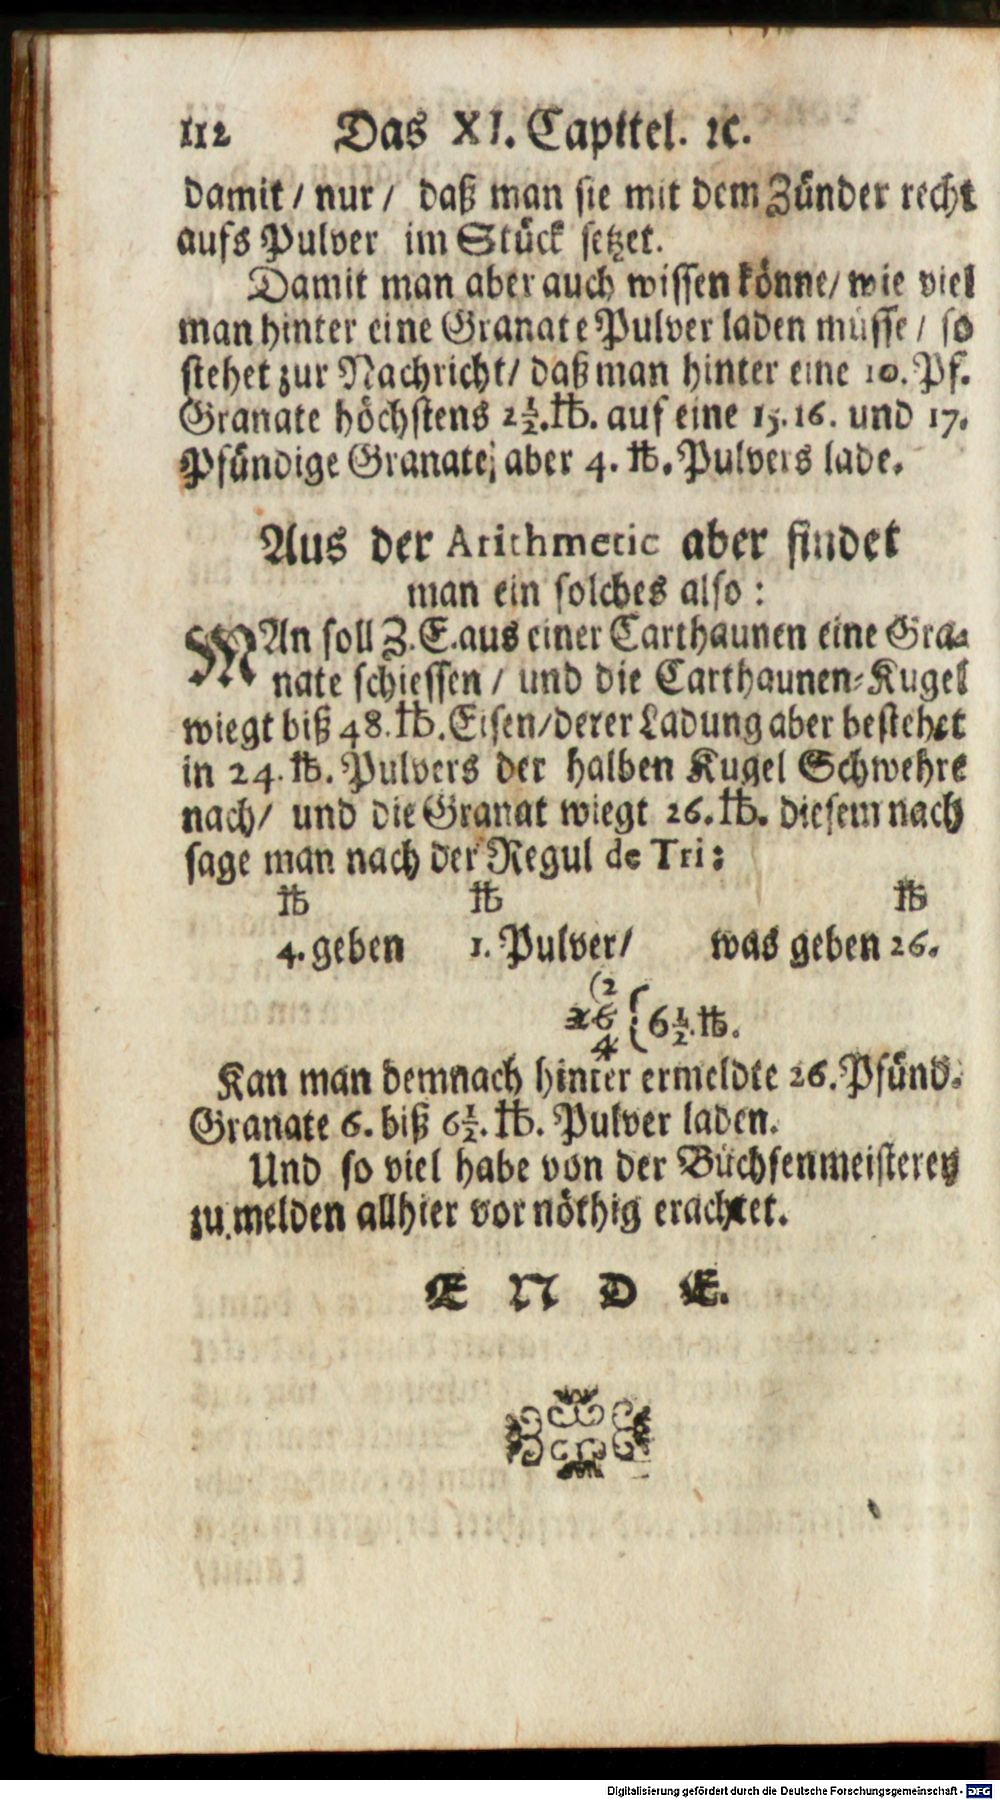 112 Das XI. Capittel. ꝛc.
damit / nur / daß man sie mit dem Zünder recht
aufs Pulver im Stück setzet.
Damit man aber auch wissen könne / wie viel
man hinter eine Granate Pulver laden müsse / so
stehet zur Nachricht / daß man hinter eine 10. Pf.
Granate höchstens 2½. ℔. auf eine 15. 16. und 17.
Pfündige Granate; aber 4. ℔. Pulvers lade.
Aus der Arithmetic aber findet
man ein solches also:
MAn soll Z. E. aus einer Carthaunen eine Gra-
nate schiessen / und die Carthaunen-Kugel
wiegt biß 48. ℔. Eisen / derer Ladung aber bestehet
in 24. ℔. Pulvers der halben Kugel Schwehre
nach / und die Granat wiegt 26. ℔. diesem nach
sage man nach der Regul de Tri:
℔ ℔ ℔
4. geben 1. Pulver / was geben 26.
(2
26 { 6½. ℔.
4
Kan man demnach hinter ermeldte 26. Pfünd.
Granate 6. biß 6½. ℔. Pulver laden.
Und so viel habe von der Büchsenmeisterey
zu melden allhier vor nöthig erachtet.
E N D E.
Digitalisierung gefördert durch die Deutsche Forschungsgemeinschaft - DFG